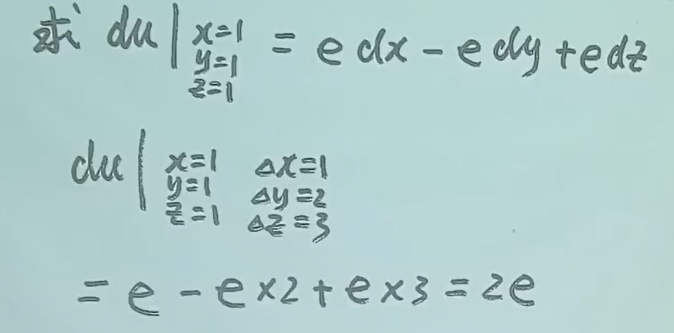 求 du|x=1 y=1 z=1 = e dx - e dy + e dz
du|x=1 y=1 z=1 Δx=1 Δy=2 Δz=3
= e - e×2 + e×3 = 2e